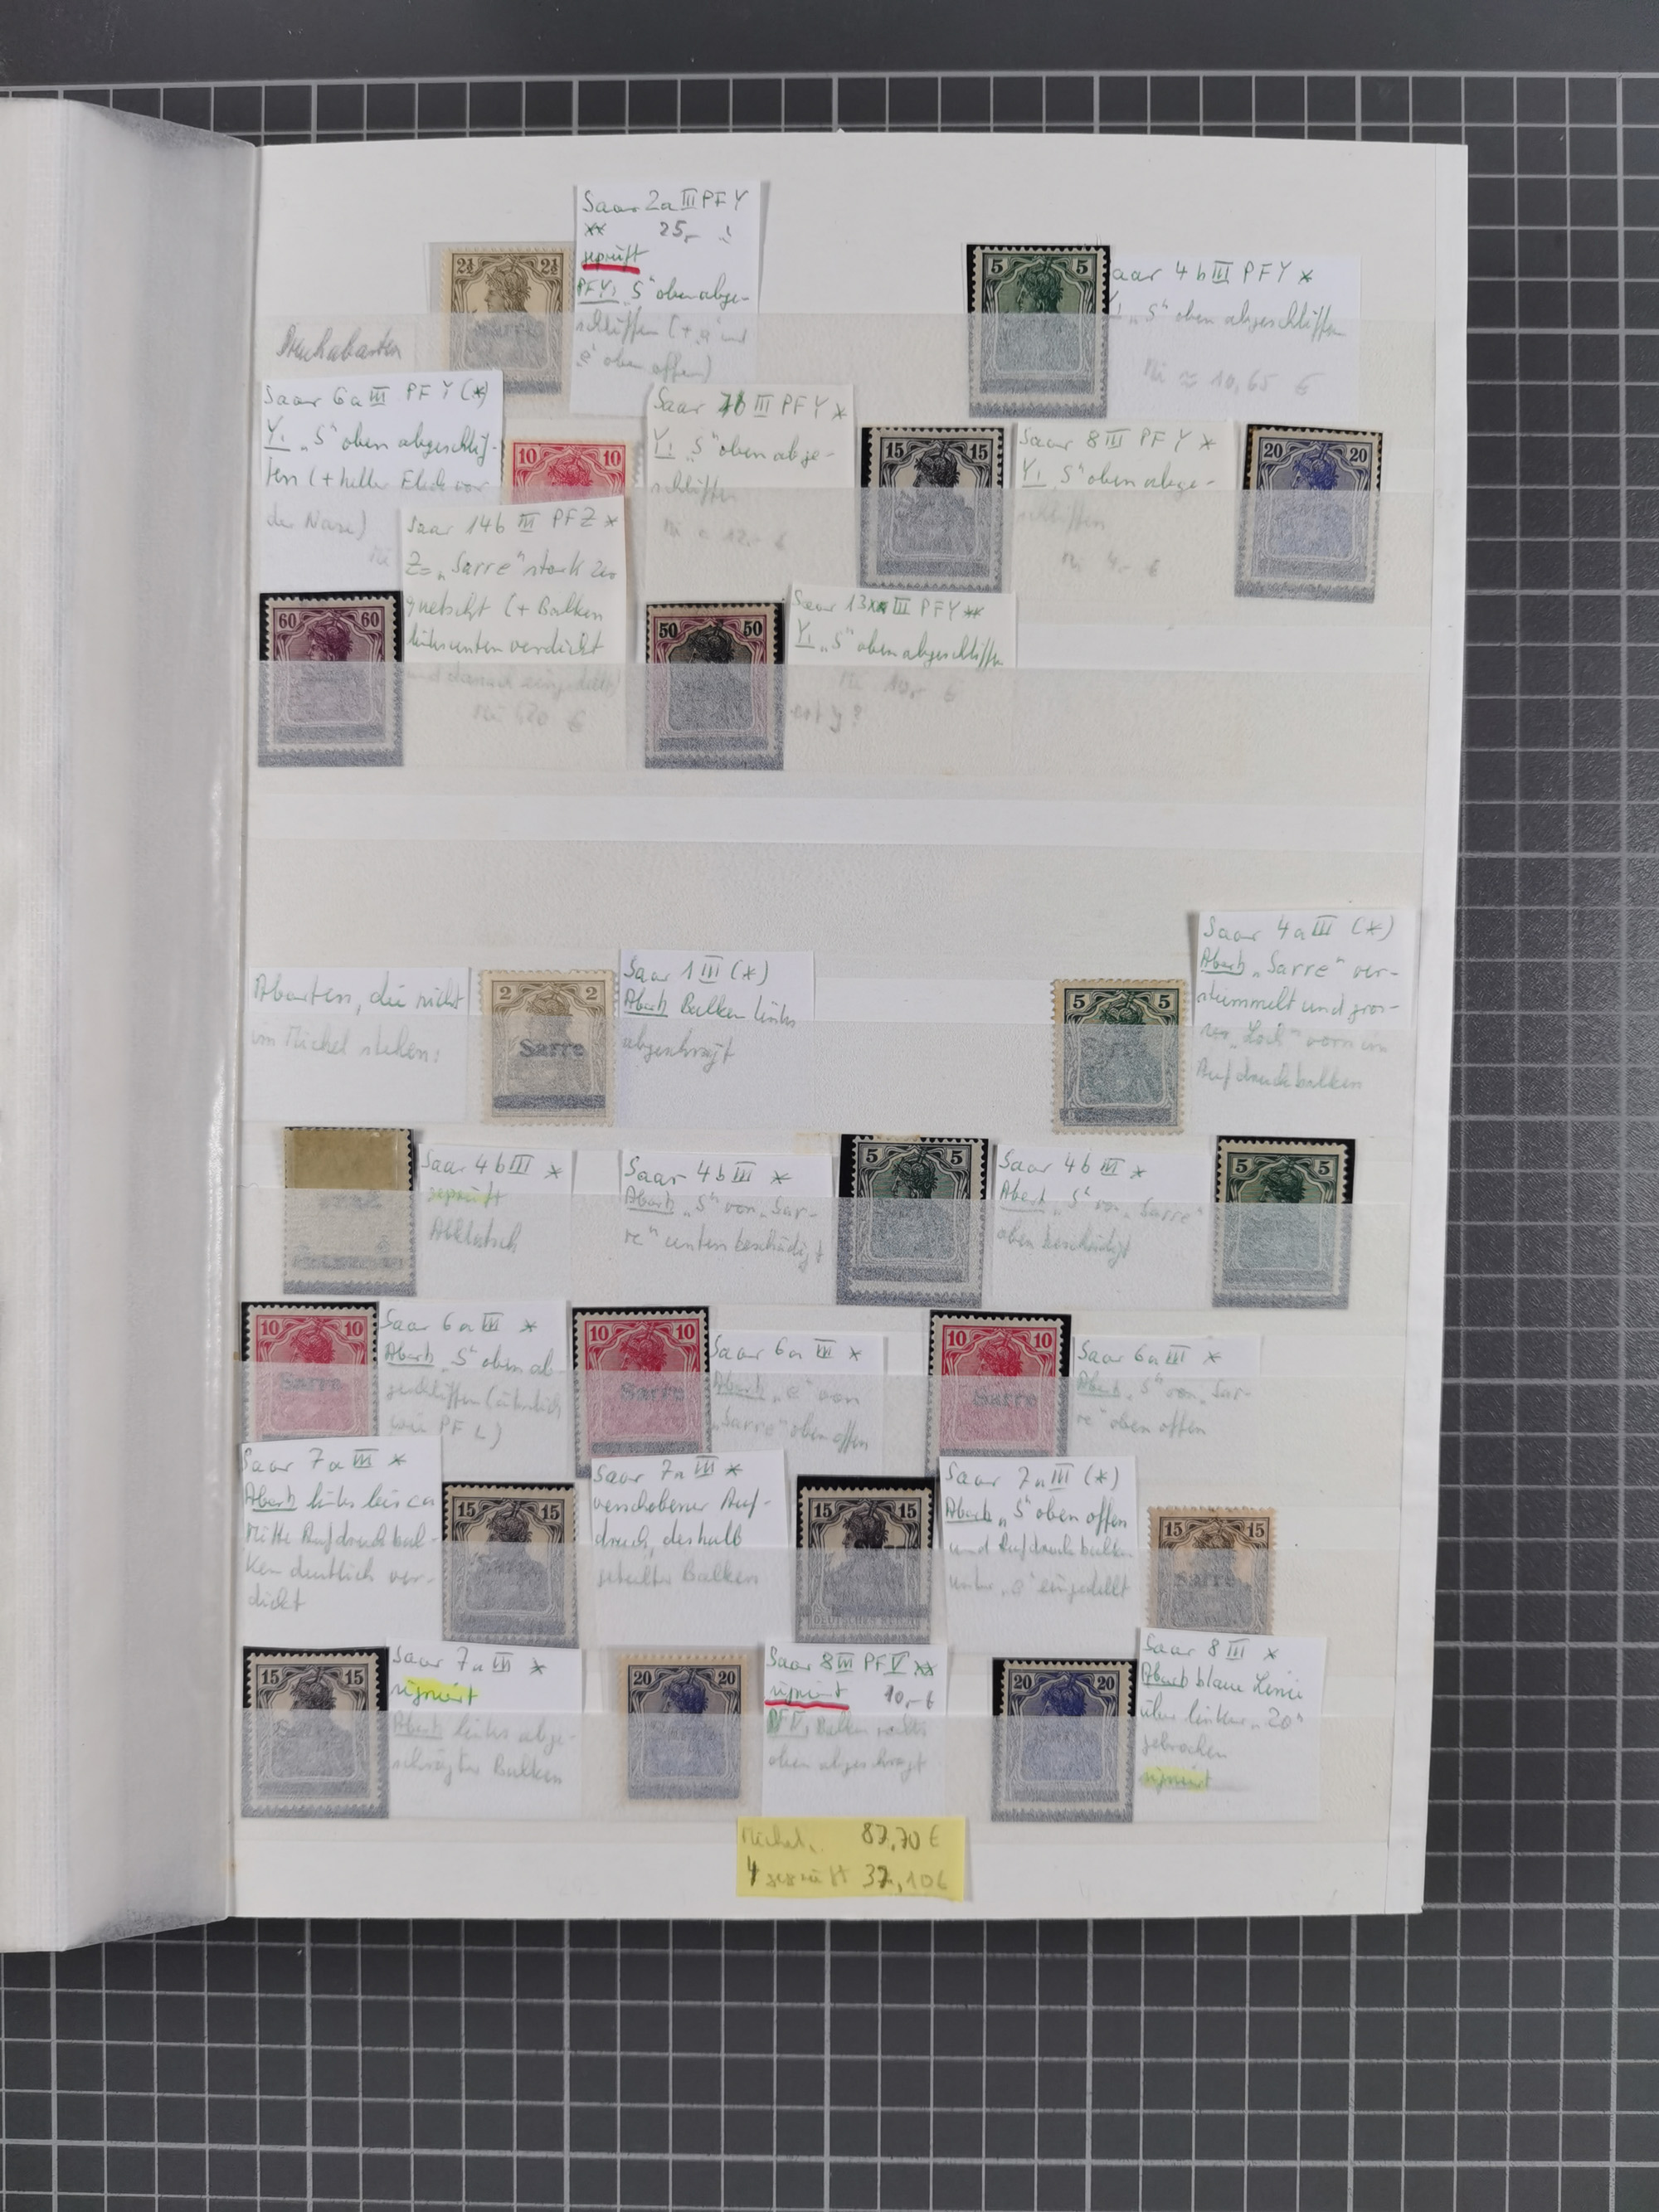 Saar 2a III PF Y
** 25,-
geprüft
PFY: „S“ oben abge-
schliffen (+ „a“ und
„e“ oben offen)
2½ 2½
Sarre
5 5
Saar 4b III PF Y *
Y: „S“ oben abgeschliffen
Mi ≈ 10,65 €
Druckabarten
Saar 6a III PF Y (*)
Y: „S“ oben abgeschlif-
fen (+ heller Fleck vor
der Nase)
Mi
10 10
Saar 7b III PF Y *
Y: „S“ oben abge-
schliffen
Mi 12,- €
15 15
Saar 8 III PF Y *
Y: „S“ oben abge-
schliffen
Mi 4,- €
20 20
Saar 14b III PF Z *
Z= „Sarre“ stark
quetscht (+ Balken
links unten verdickt
und danach eingedellt)
Mi €
60 60
50 50
Saar 13 III PF Y **
Y: „S“ oben abgeschliffen
Mi 10,- €
Abarten, die nicht
im Michel stehen:
2 2
Sarre
Saar 1 III (*)
Abart Balken links
abgeschrägt
5 5
Saar 4a III (*)
Abart „Sarre“ ver-
stümmelt und gros-
ses „Loch“ vorn im
Aufdruckbalken
Saar 4b III *
geprüft
Abklatsch
Saar 4b III *
Abart „S“ von „Sar-
re“ unten beschädigt
5 5
Saar 4b III *
Abart „S“ von „Sarre“
oben beschädigt
5 5
10 10
Sarre
Saar 6a III *
Abart „S“ oben ab-
geschliffen (ähnlich
wie PF L)
10 10
Sarre
Saar 6a III *
Abart „e“ von
„Sarre“ oben offen
10 10
Sarre
Saar 6a III *
Abart „S“ von „Sar-
re“ oben offen
Saar 7a III *
Abart links bis ca
Mitte Aufdruckbal-
ken deutlich ver-
dickt
15 15
Sarre
Saar 7a III *
verschobener Auf-
druck, deshalb
geteilter Balken
15 15
DEUTSCHES REICH
Saar 7a III (*)
Abart „S“ oben offen
und Aufdruckbalken
unter „e“ eingedellt
15 15
Sarre
15 15
Sarre
Saar 7a III *
signiert
Abart links abge-
schrägter Balken
20 20
Sarre
Saar 8 III PF V **
signiert 10,- €
PF V: Balken rechts
oben abgeschrägt
20 20
Sarre
Saar 8 III *
Abart blaue Linie
über linker „20“
gebrochen
signiert
Michel: 87,70 €
4 geprüft 37,10 €